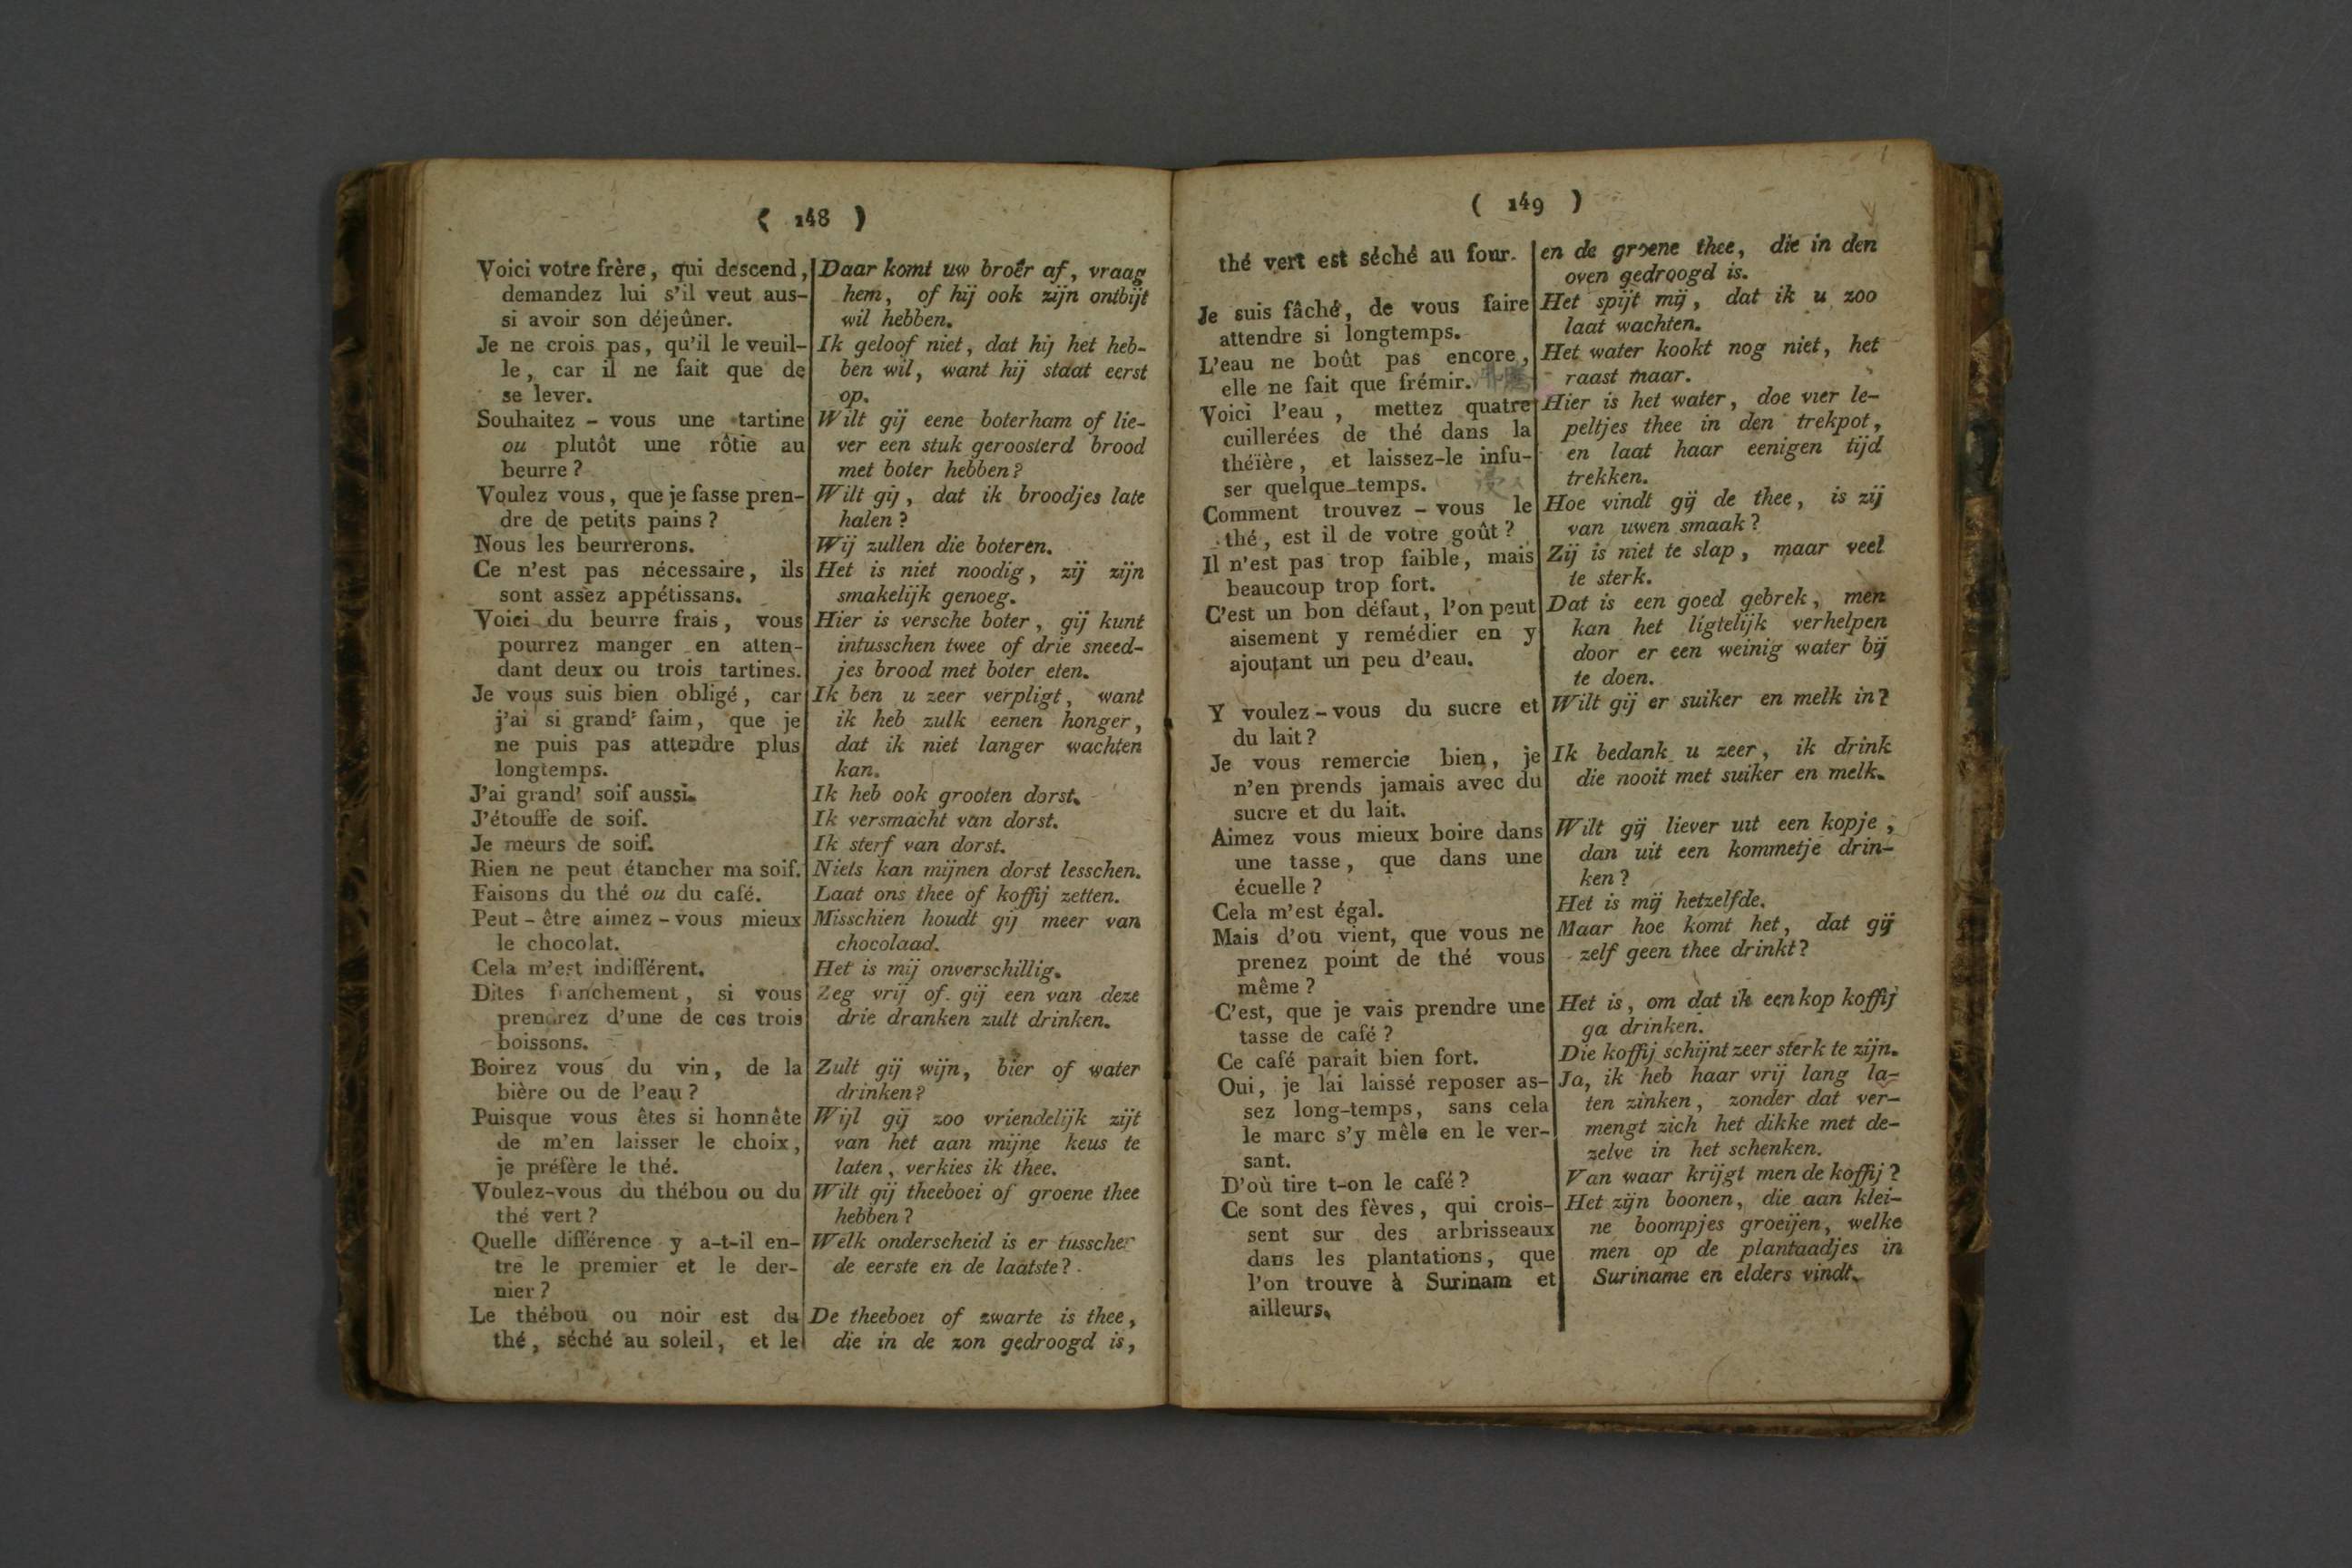 ( 148 )
Voici votre frère, qui descend,
demandez lui s'il veut aus-
si avoir son déjeûner.
Je ne crois pas, qu'il le veuil-
le, car il ne fait que de
se lever.
Souhaitez - vous une tartine
ou plutôt une rôtie au
beurre ?
Voulez vous, que je fasse pren-
dre de petits pains ?
Nous les beurrerons.
Ce n'est pas nécessaire, ils
sont assez appétissans.
Voici du beurre frais, vous
pourrez manger en atten-
dant deux ou trois tartines.
Je vous suis bien obligé, car
j'ai si grand' faim, que je
ne puis pas attendre plus
longtemps.
J'ai grand' soif aussi.
J'étouffe de soif.
Je meurs de soif.
Rien ne peut étancher ma soif.
Faisons du thé ou du café.
Peut - être aimez - vous mieux
le chocolat.
Cela m'est indifférent.
Dites franchement, si vous
prendrez d'une de ces trois
boissons.
Boirez vous du vin, de la
bière ou de l'eau ?
Puisque vous êtes si honnête
de m'en laisser le choix,
je préfère le thé.
Voulez-vous du thébou ou du
thé vert ?
Quelle différence y a-t-il en-
tre le premier et le der-
nier ?
Le thébou ou noir est du
thé, séché au soleil, et le
Daar komt uw broêr af, vraag
hem, of hij ook zijn ontbijt
wil hebben.
Ik geloof niet, dat hij het heb-
ben wil, want hij staat eerst
op.
Wilt gij eene boterham of lie-
ver een stuk geroosterd brood
met boter hebben?
Wilt gij, dat ik broodjes late
halen ?
Wij zullen die boteren.
Het is niet noodig, zij zijn
smakelijk genoeg.
Hier is versche boter, gij kunt
intusschen twee of drie sneed-
jes brood met boter eten.
Ik ben u zeer verpligt, want
ik heb zulk eenen honger,
dat ik niet langer wachten
kan.
Ik heb ook grooten dorst.
Ik versmacht van dorst.
Ik sterf van dorst.
Niets kan mijnen dorst lesschen.
Laat ons thee of koffij zetten.
Misschien houdt gij meer van
chocolaad.
Het is mij onverschillig.
Zeg vrij of gij een van deze
drie dranken zult drinken.
Zult gij wijn, bier of water
drinken?
Wijl gij zoo vriendelijk zijt
van het aan mijne keus te
laten, verkies ik thee.
Wilt gij theeboei of groene thee
hebben ?
Welk onderscheid is er tusschen
de eerste en de laatste?
De theeboei of zwarte is thee,
die in de zon gedroogd is,
( 149 )
thé vert est séché au four.
Je suis fâché, de vous faire
attendre si longtemps.
L'eau ne boût pas encore,
elle ne fait que frémir.
Voici l'eau, mettez quatre
cuillerées de thé dans la
théïère, et laissez-le infu-
ser quelque-temps.
Comment trouvez - vous le
thé, est il de votre goût ?
Il n'est pas trop faible, mais
beaucoup trop fort.
C'est un bon défaut, l'on peut
aisement y remédier en y
ajoutant un peu d'eau.
Y voulez - vous du sucre et
du lait ?
Je vous remercie bien, je
n'en prends jamais avec du
sucre et du lait.
Aimez vous mieux boire dans
une tasse, que dans une
écuelle ?
Cela m'est égal.
Mais d'où vient, que vous ne
prenez point de thé vous
même ?
C'est, que je vais prendre une
tasse de café ?
Ce café parait bien fort.
Oui, je lai laissé reposer as-
sez long-temps, sans cela
le marc s'y mêle en le ver-
sant.
D'où tire t-on le café ?
Ce sont des fèves, qui crois-
sent sur des arbrisseaux
dans les plantations, que
l'on trouve à Surinam et
ailleurs.
en de groene thee, die in den
oven gedroogd is.
Het spijt mij, dat ik u zoo
laat wachten.
Het water kookt nog niet, het
raast maar.
Hier is het water, doe vier le-
peltjes thee in den trekpot,
en laat haar eenigen tijd
trekken.
Hoe vindt gij de thee, is zij
van uwen smaak ?
Zij is niet te slap, maar veel
te sterk.
Dat is een goed gebrek, men
kan het ligtelijk verhelpen
door er een weinig water bij
te doen.
Wilt gij er suiker en melk in?
Ik bedank u zeer, ik drink
die nooit met suiker en melk.
Wilt gij liever uit een kopje,
dan uit een kommetje drin-
ken ?
Het is mij hetzelfde.
Maar hoe komt het, dat gij
zelf geen thee drinkt?
Het is, om dat ik een kop koffij
ga drinken.
Die koffij schijnt zeer sterk te zijn.
Ja, ik heb haar vrij lang la-
ten zinken, zonder dat ver-
mengt zich het dikke met de-
zelve in het schenken.
Van waar krijgt men de koffij ?
Het zijn boonen, die aan klei-
ne boompjes groeijen, welke
men op de plantaadjes in
Suriname en elders vindt.